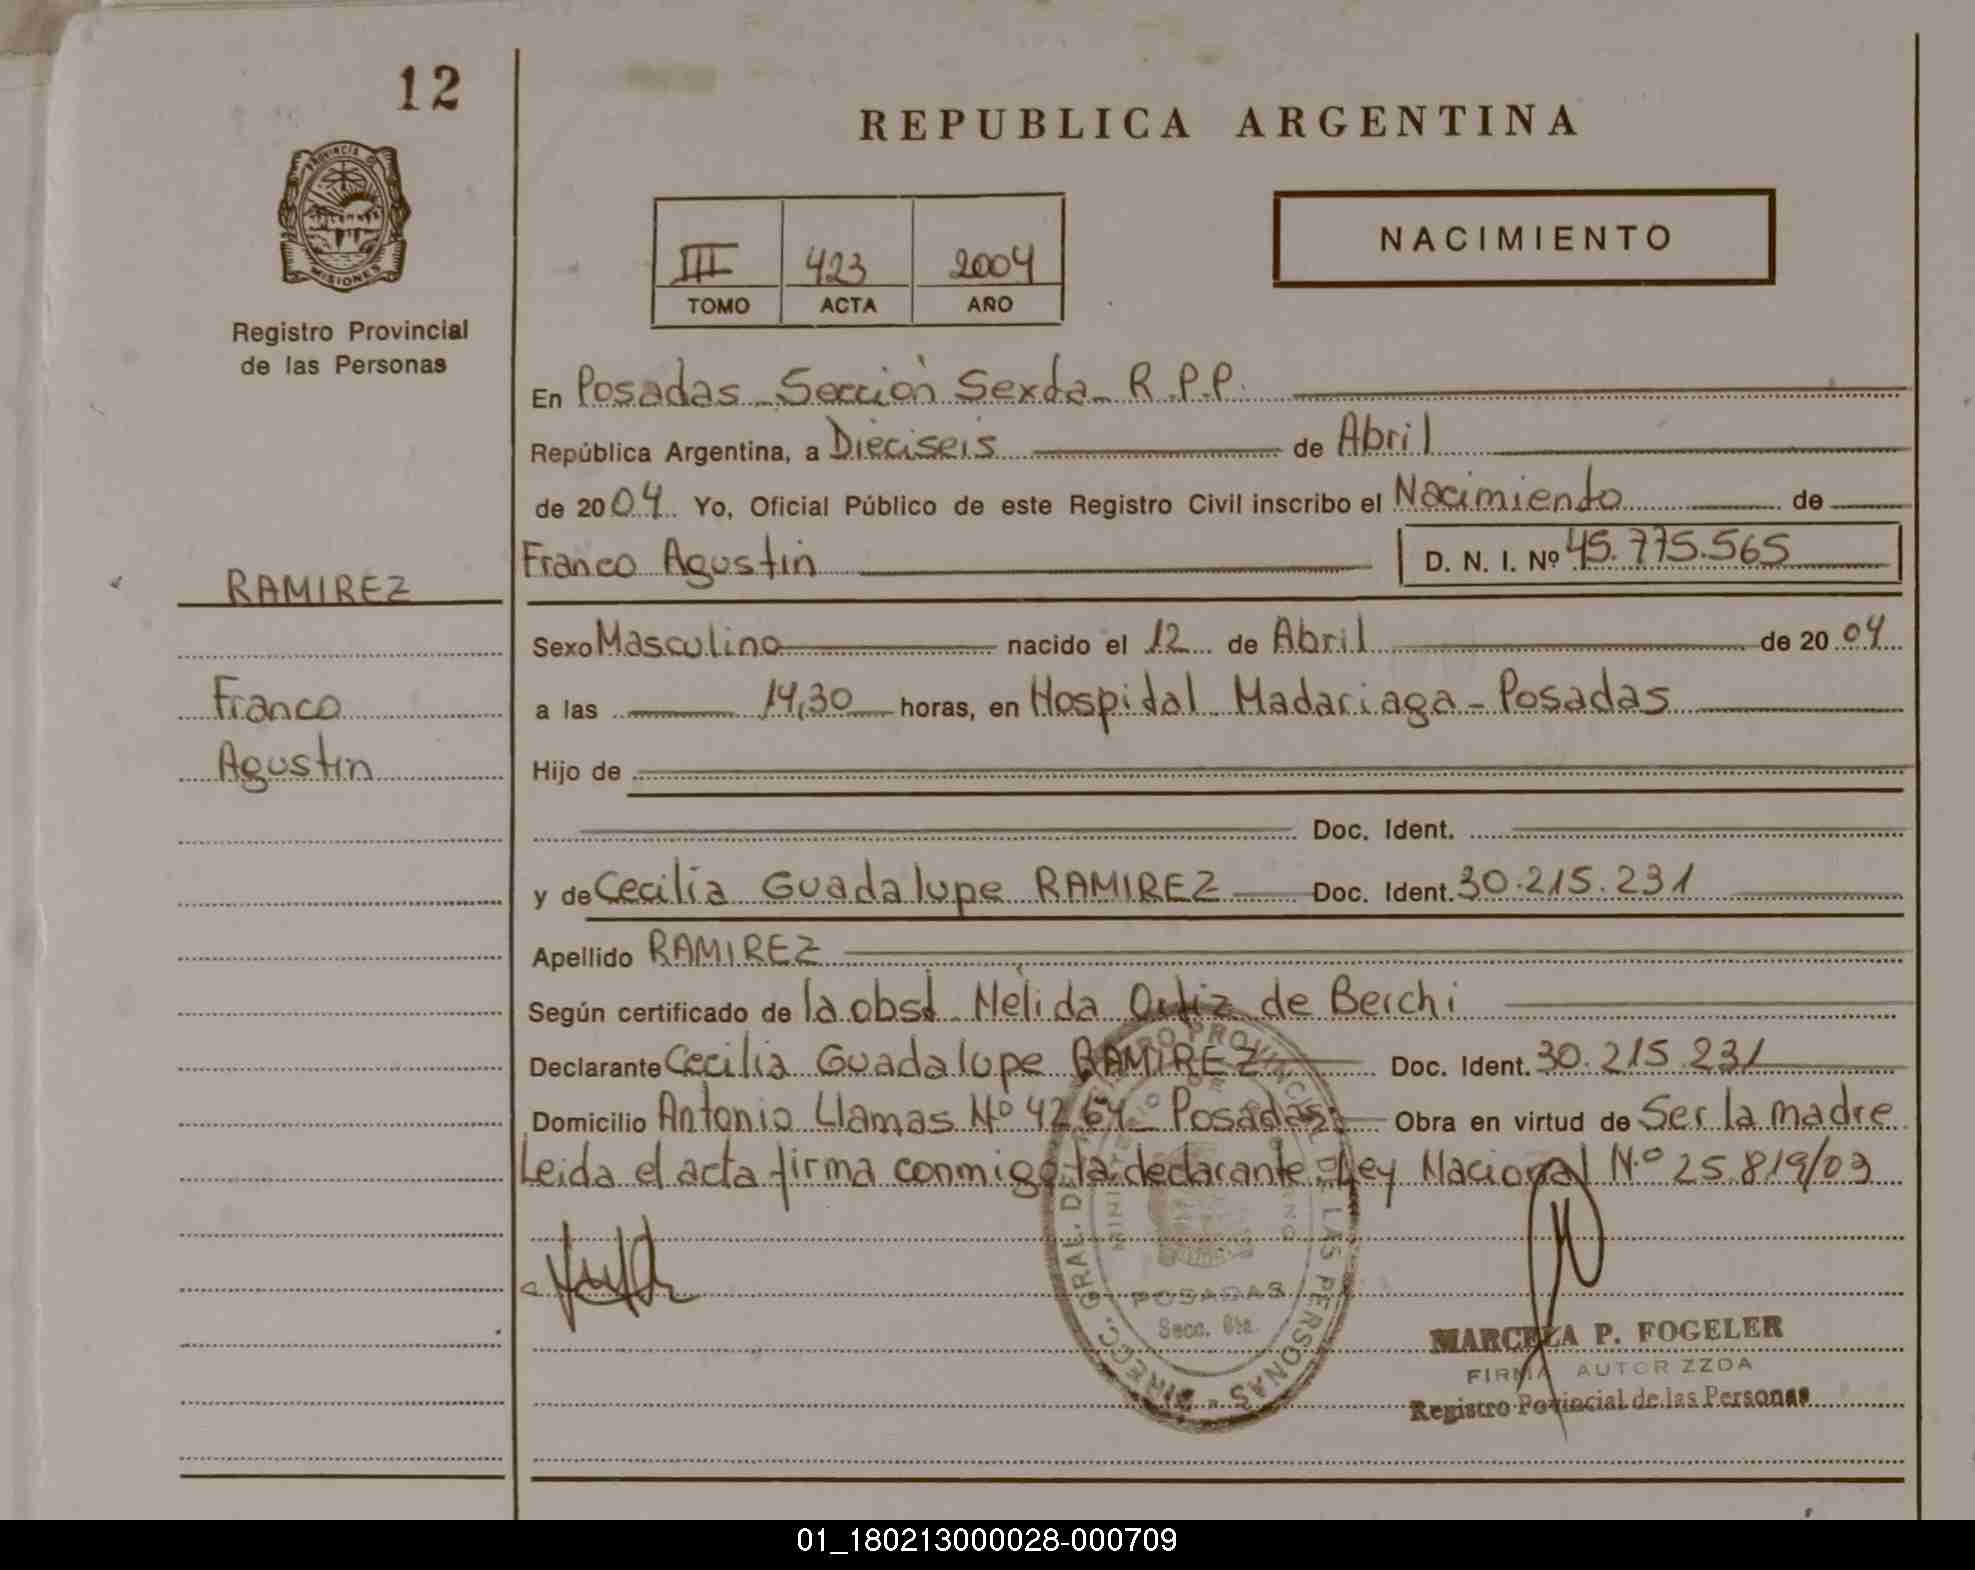 12
REPUBLICA ARGENTINA
PROVINCIA DE
MISIONES
Registro Provincial
de las Personas
NACIMIENTO
III 423 2004
TOMO ACTA AÑO
En Posadas - Sección Sexta - R.P.P.
República Argentina, a Dieciseis de Abril
de 2004 Yo, Oficial Público de este Registro Civil inscribo el Nacimiento de
Franco Agustin D. N. I. Nº 45.775.565
RAMIREZ
Franco
Agustin
Sexo Masculino nacido el 12 de Abril de 2004
a las 14,30 horas, en Hospital Madariaga - Posadas
Hijo de
Doc. Ident.
y de Cecilia Guadalupe RAMIREZ Doc. Ident. 30.215.231
Apellido RAMIREZ
Según certificado de la obst. Nélida Ortiz de Berchi
Declarante Cecilia Guadalupe RAMIREZ Doc. Ident. 30.215.231
Domicilio Antonio Llamas Nº 4264 - Posadas - Obra en virtud de Ser la madre
Leida el acta firma conmigo la declarante. Ley Nacional N.º 25.819/03
DIRECC. GRAL. DEL REGISTRO PROVINCIAL DE LAS PERSONAS
POSADAS
Secc. 6ta.
MARCELA P. FOGELER
FIRMA AUTORIZZDA
Registro Povincial de las Personas
01_180213000028-000709